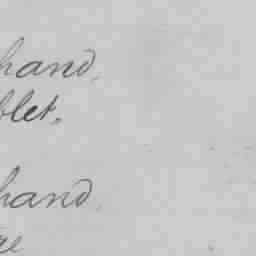 hand,
blet.
hand
re